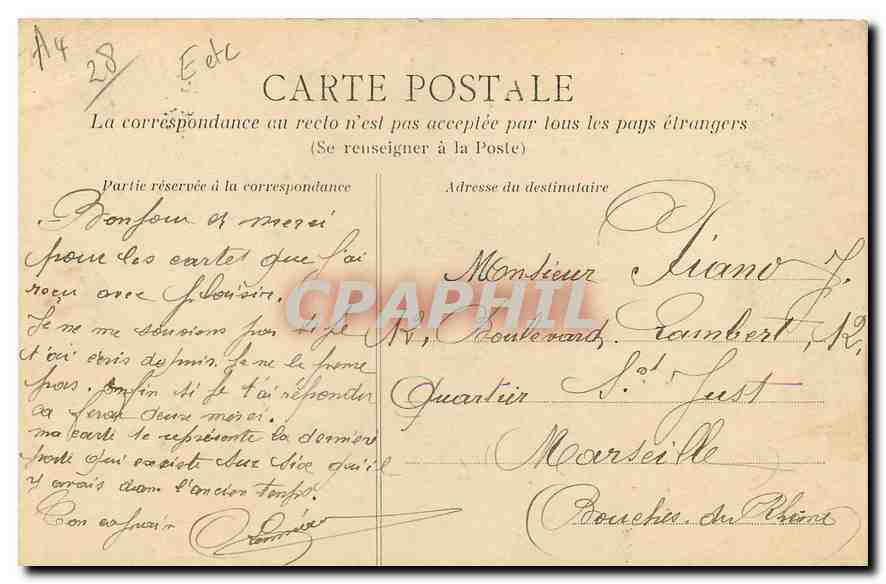 A4
28
E etc
CARTE POSTALE
La correspondance au recto n'est pas acceptée par tous les pays étrangers
(Se renseigner à la Poste)
Partie réservée à la correspondance
Bonjour et merci
pour les cartes que j'ai
reçu avec plaisir.
Je ne me souviens pas si je
t'ai écris depuis. Je ne le pense
pas. Enfin si je t'ai répondu
ça feras deux merci.
ma carte te représente la derniere
porte qui existe sur six qu'il
y avais dans l'ancien temps.
Ton copain
Adresse du destinataire
Monsieur Fiano J.
12, Boulevard Lambert, 12,
Quartier St Just
Marseille
(Bouches-du-Rhône)
CPAPHIL